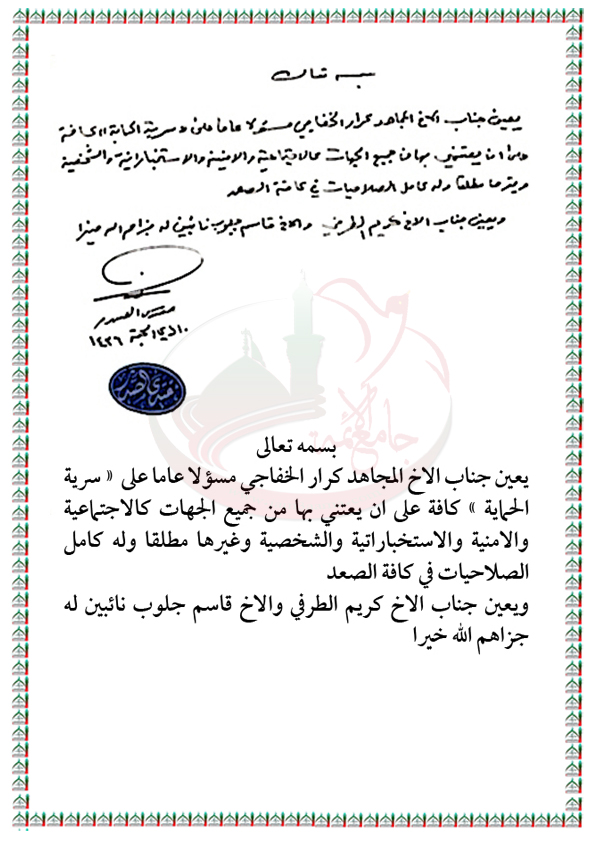 بسمه تعالى
يعين جناب الاخ المجاهد كرار الخفاجي مسؤلا عاما على « سرية الحماية » كافة
على ان يعتني بها من جميع الجهات كالاجتماعية والامنية والاستخباراتية والشخصية
وغيرها مطلقا وله كامل الصلاحيات في كافة الصعد
ويعين جناب الاخ كريم الطرفي والاخ قاسم جلوب نائبين له جزاهم الله خيرا
مقتدى الصدر
١٠ ذي الحجة ١٤٢٦
مقتدى الصدر
جامع الائمة
بسمه تعالى
يعين جناب الاخ المجاهد كرار الخفاجي مسؤلا عاما على « سرية
الحماية » كافة على ان يعتني بها من جميع الجهات كالاجتماعية
والامنية والاستخباراتية والشخصية وغيرها مطلقا وله كامل
الصلاحيات في كافة الصعد
ويعين جناب الاخ كريم الطرفي والاخ قاسم جلوب نائبين له
جزاهم الله خيرا